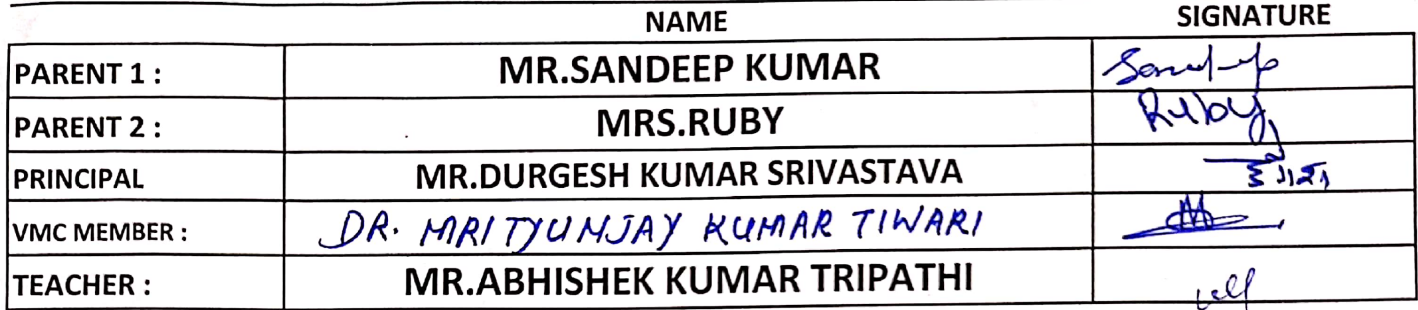 NAME SIGNATURE
PARENT 1 : MR.SANDEEP KUMAR Sandeep
PARENT 2 : MRS.RUBY Ruby
PRINCIPAL MR.DURGESH KUMAR SRIVASTAVA
VMC MEMBER : DR. MRITYUNJAY KUMAR TIWARI
TEACHER : MR.ABHISHEK KUMAR TRIPATHI